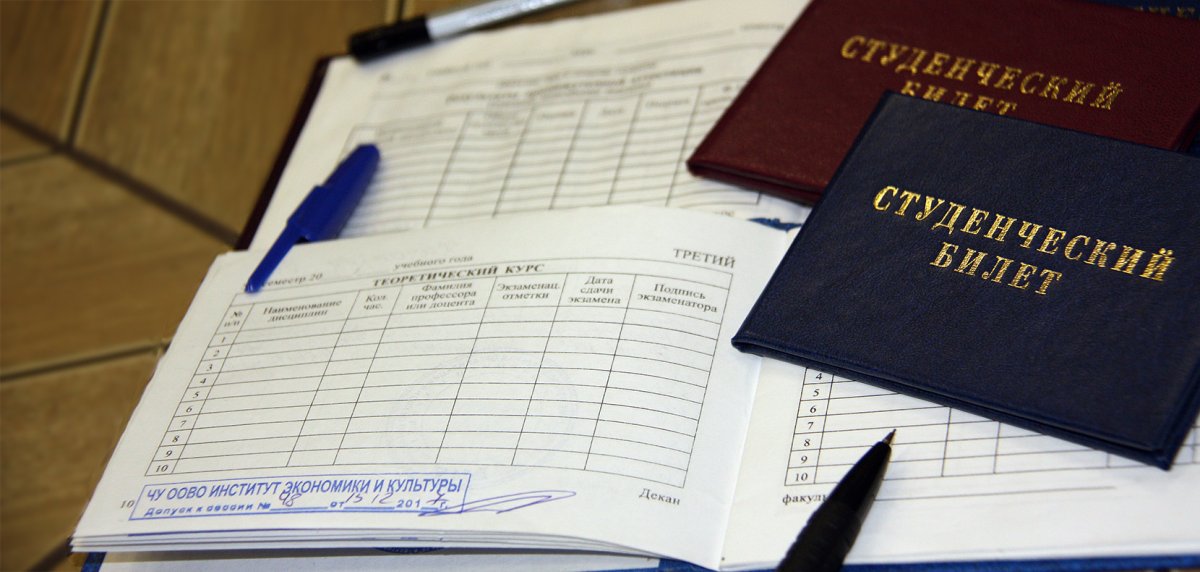 СТУДЕНЧЕСКИЙ
БИЛЕТ
СТУДЕНЧЕСКИЙ
БИЛЕТ
семестр 20
учебного года
ТРЕТИЙ
ТЕОРЕТИЧЕСКИЙ КУРС
№ п/п
Наименование дисциплин
Кол. час.
Фамилия профессора или доцента
Экзаменац. отметки
Дата сдачи экзамена
Подпись экзаменатора
1
2
3
4
5
6
7
8
9
10
Декан
10
ЧУ ООВО ИНСТИТУТ ЭКОНОМИКИ И КУЛЬТУРЫ
Допуск к сессии № 48 от 15 12 2017 г.
4
5
6
7
8
9
10